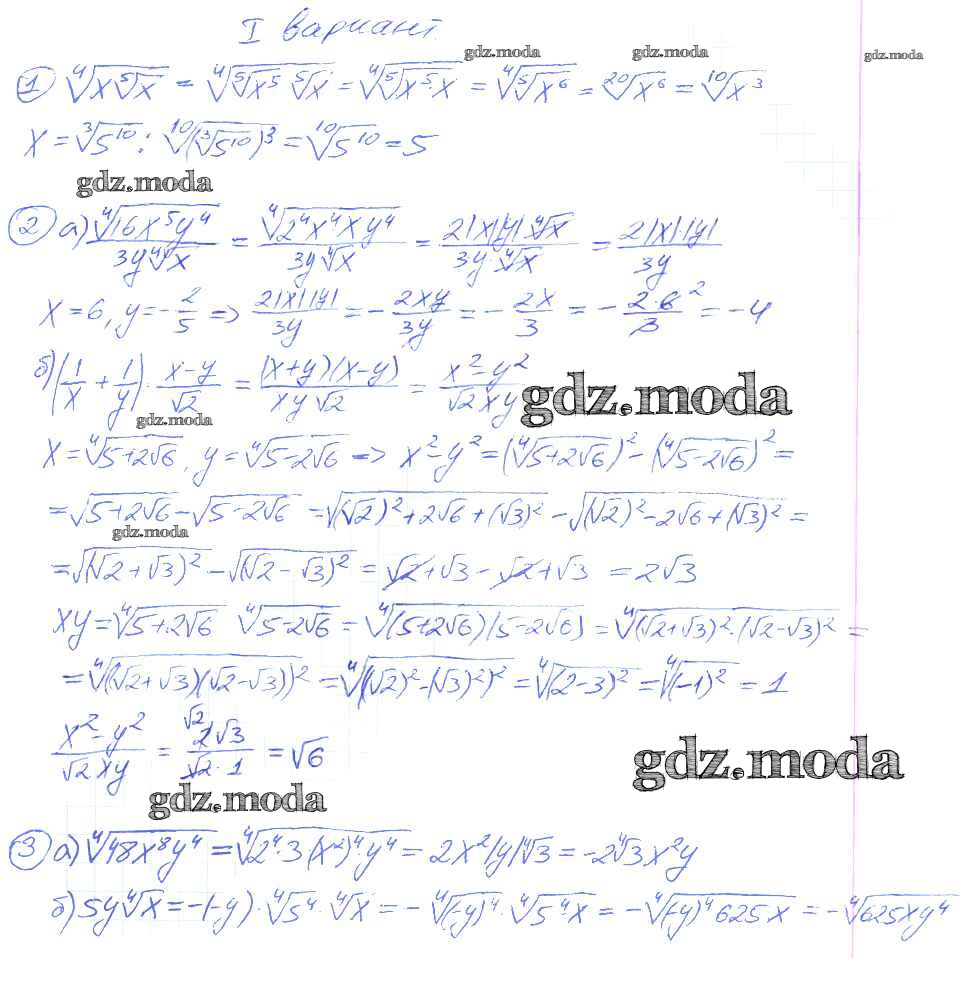 I вариант.
gdz.moda gdz.moda gdz.moda
① ⁴√(x⁵√x) = ⁴√(⁵√x⁵ ⁵√x) = ⁴√(⁵√(x⁵·x)) = ⁴√(⁵√x⁶) = ²⁰√x⁶ = ¹⁰√x³
x = ³√5¹⁰ : ¹⁰√(³√5¹⁰)³ = ¹⁰√5¹⁰ = 5
gdz.moda
② а) ⁴√(16x⁵y⁴)/(3y⁴√x) = ⁴√(2⁴x⁴xy⁴)/(3y⁴√x) = 2|x||y|⁴√x/(3y·⁴√x) = 2|x|·|y|/3y
x = 6, y = -2/5 => 2|x||y|/3y = -2xy/3y = -2x/3 = -2·6²/3 = -4
б) (1/x + 1/y)·(x-y)/√2 = (x+y)(x-y)/(xy√2) = (x²-y²)/(√2xy)
gdz.moda
gdz.moda
x = ⁴√(5+2√6), y = ⁴√(5-2√6) => x²-y² = (⁴√(5+2√6))² - (⁴√(5-2√6))² =
= √(5+2√6) - √(5-2√6) = √((√2)²+2√6+(√3)²) - √((√2)²-2√6+(√3)²) =
gdz.moda
= √((√2+√3)²) - √((√2-√3)²) = √2+√3-√2+√3 = 2√3
xy = ⁴√(5+2√6) ⁴√(5-2√6) = ⁴√((5+2√6)(5-2√6)) = ⁴√((√2+√3)²·(√2-√3)²) =
= ⁴√((√2+√3)(√2-√3))² = ⁴√((√2)²-(√3)²)² = ⁴√(2-3)² = ⁴√(-1)² = 1
(x²-y²)/(√2xy) = √2 2√3/(√2·1) = √6
gdz.moda
gdz.moda
③ а) ⁴√(48x⁸y⁴) = ⁴√(2⁴·3·(x²)⁴·y⁴) = 2x²|y|⁴√3 = -2⁴√3x²y
б) 5y⁴√x = -(-y)·⁴√5⁴·⁴√x = -⁴√(-y)⁴·⁴√(5⁴x) = -⁴√((-y)⁴625x) = -⁴√(625xy⁴)